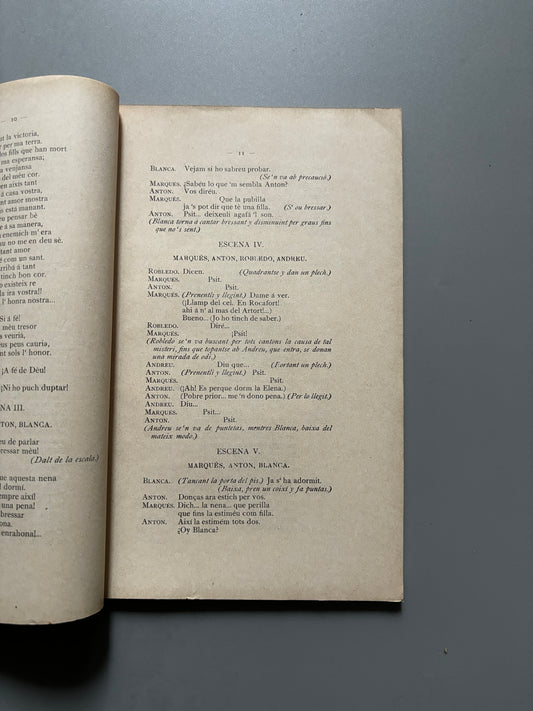 — 10 —
t la victoria,
r per ma terra.
les fills que han mort
ma esperansa;
venjansa
del méu cor.
en aixís tant
á casa vostra,
tant amor nostra
is está manant.
u pensar bé
á sa manera,
enemich m' era
no me en deu sé.
tant amor
com un sant.
arribá á tant
tinch bon cor.
de tant en tant
la ira vostra!!
l' honra nostra...
¡Sí á fé!
mèu tresor
veuriá,
eus peus cauria,
tant sols l' honor.
¡A fé de Dèu!
¡Ni ho puch duptar!
NA III.
TON, BLANCA.
eu de parlar
bressar mèu!
(Dalt de la escala.)
que aquesta nena
dormí.
empre aixi!
una pena!
bressar
ona.
enrahona!..
— 11 —
BLANCA. Vejam si ho sabreu probar.
(Se'n va ab precaució.)
MARQUÉS. ¡Sabéu lo que 'm sembla Anton?
ANTON. Vos diréu.
MARQUÉS. Que la pubilla
ja 's pot dir que té una filla. (S' ou bressar.)
ANTON. Psit... deixeuli agafá 'l son.
(Blanca torna á cantar bressant y disminuint per graus fins
que no's sent.)
ESCENA IV.
MARQUÉS, ANTON, ROBLEDO, ANDREU.
ROBLEDO. Dicen. (Quadrantse y dan un plech.)
MARQUÉS. Psit.
ANTON. Psit.
MARQUÉS. (Prenentli y llegint.) Dame á ver.
(¡Llamp del cel. En Rocafort!
ahí á n' al mas del Artort!...
Bueno... (Jo ho tinch de saber.)
ROBLEDO. Diré...
MARQUÉS. ¡Psit!
(Robledo se'n va buscant per tots cantons la causa de tal
misteri, fins que topantse ab Andreu, que entra, se donan
una mirada de odi.)
ANDREU. Diu que... (Portant un plech.)
ANTON. (Prenentli y llegint). Psit.
MARQUÉS. Psit.
ANDREU. (¡Ah! Es perque dorm la Elena.)
ANTON. (Pobre prior... me 'n dono pena.) (Per lo llegit.)
ANDREU. Diu...
MARQUÉS. Psit...
ANTON. Psit.
(Andreu se'n va de puntetas, mentres Blanca, baixa del
mateix modo.)
ESCENA V.
MARQUÉS, ANTON, BLANCA.
BLANCA. (Tancant la porta del pis.) Ja s' ha adormit.
(Baixa, pren un coixí y fa puntas.)
ANTON. Donças ara estich per vos.
MARQUÉS. Dich... la nena... que perilla
que fins la estiméu com filla.
ANTON. Aixi la estimém tots dos.
¡Oy Blanca?